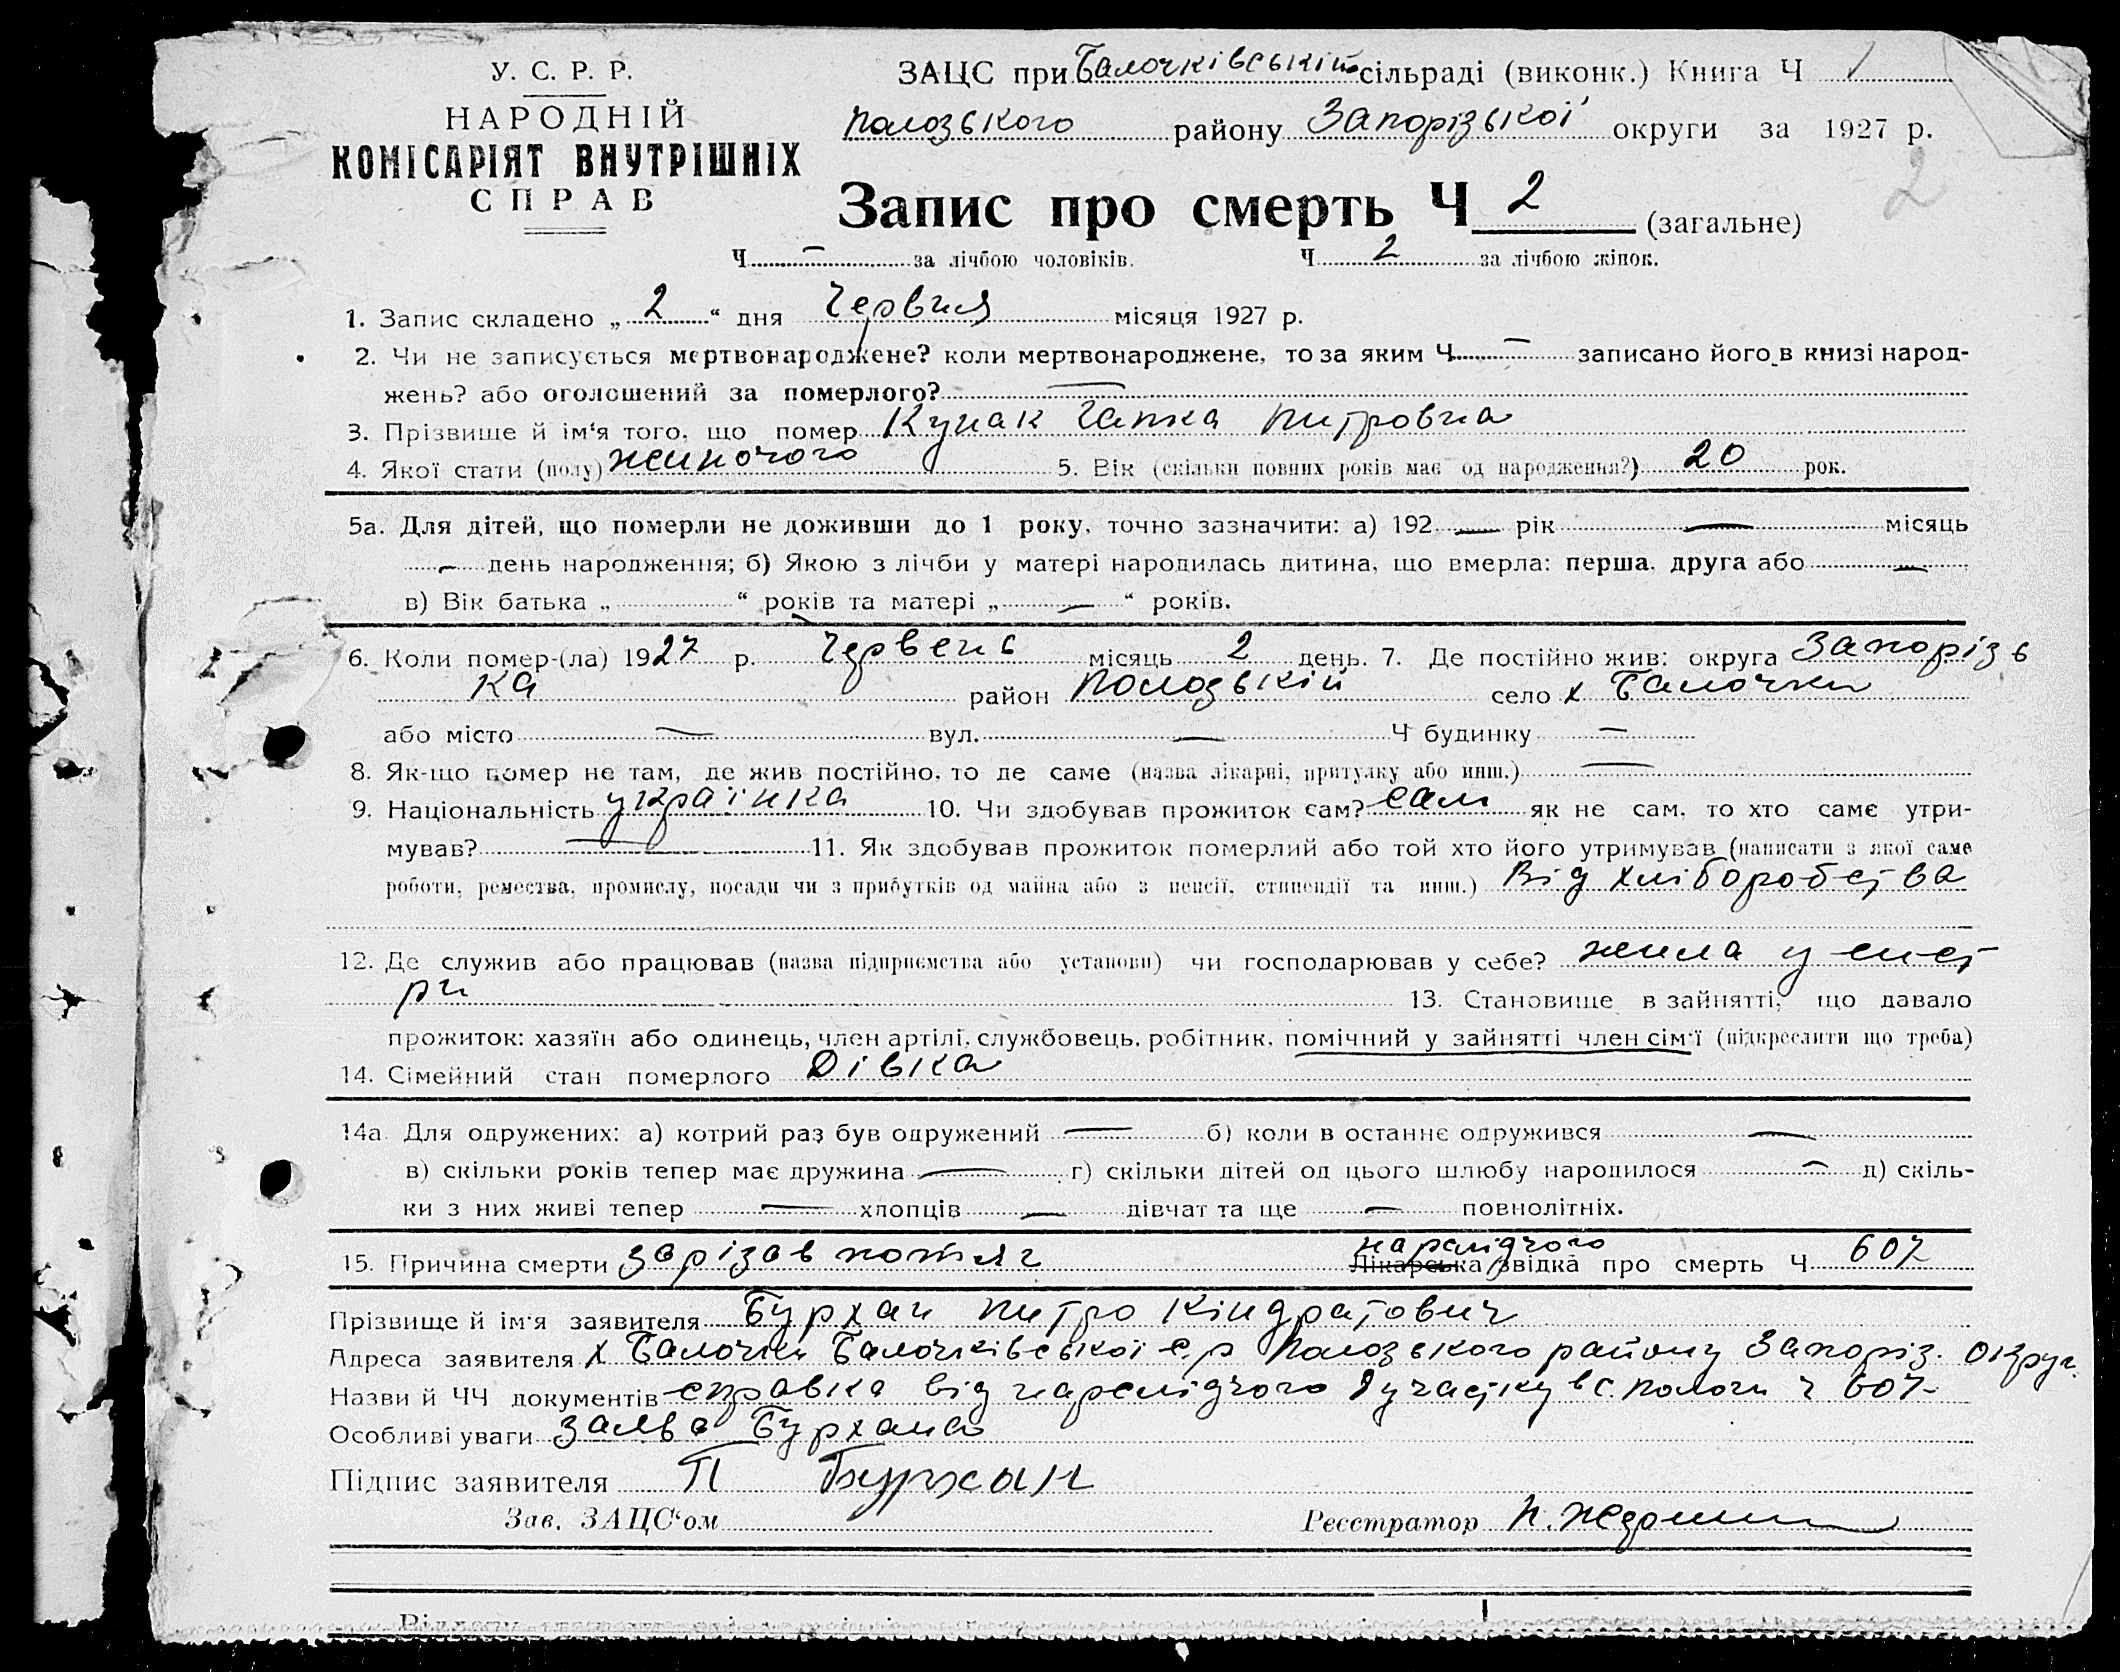 У. С. Р. Р.
НАРОДНІЙ
КОМІСАРІЯТ ВНУТРІШНІХ
СПРАВ
ЗАЦС при Балочківській сільраді (виконк.) Книга Ч 1
Пологзького району Запорізької округи за 1927 р.
2
Запис про смерть Ч 2 (загальне)
Ч — за лічбою чоловіків. Ч 2 за лічбою жінок.
1. Запис складено „ 2 “ дня Червня місяця 1927 р.
2. Чи не записується мертвонароджене? коли мертвонароджене, то за яким Ч — записано його в книзі народ-
жень? або оголошений за померлого? —
3. Прізвище й ім‘я того, що помер Кунак Гапка Питровна
4. Якої стати (полу) жиночого 5. Вік (скільки повних років має од народження?) 20 рок.
5а. Для дітей, що померли не доживши до 1 року, точно зазначити: а) 192 — рік — місяць
— день народження; б) Якою з лічби у матері народилась дитина, що вмерла: перша, друга або —
в) Вік батька „ “ років та матері „ — “ років.
6. Коли помер-(ла) 1927 р. Червень місяць 2 день. 7. Де постійно жив: округа Запорізь
ка район Пологзькій село х Балочки
або місто — вул. — Ч будинку —
8. Як-що помер не там, де жив постійно, то де саме (назва лікарні, притулку або инш.) —
9. Національність українка 10. Чи здобував прожиток сам? сам як не сам, то хто саме утри-
мував? — 11. Як здобував прожиток померлий або той хто його утримував (написати з якої саме
роботи, ремества, промислу, посади чи з прибутків од майна або з пенсії, стипендії та инш.) Від хліборобства
12. Де служив або працював (назва підприємства або установи) чи господарював у себе? жила у сист
ри 13. Становище в зайнятті, що давало
прожиток: хазяїн або одинець, член артілі, службовець, робітник, помічний у зайнятті член сім‘ї (підкреслити що треба)
14. Сімейний стан померлого Дівка
14а. Для одружених: а) котрий раз був одружений — б) коли в останнє одружився —
в) скільки років тепер має дружина — г) скільки дітей од цього шлюбу народилося — д) скіль-
ки з них живі тепер — хлопців — дівчат та ще — повнолітніх.
15. Причина смерти зарізав потяг нарслідчого Лікарська звідка про смерть Ч 607
Прізвище й ім‘я заявителя Бурхан Питро Кіндратович
Адреса заявителя х Балочки Балочківської с/р Пологзького району Запоріз. округ.
Назви й ЧЧ документів справка від нарслідчого участку в с. Пологи ч 607
Особливі уваги заява Бурхана
Підпис заявителя П Бурхан
Зав. ЗАЦС‘ом Реєстратор